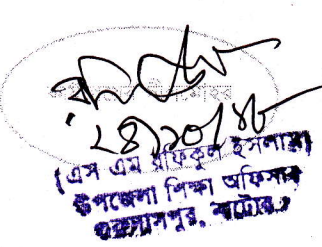 ২৪/১০/১৮
(এস এম রফিকুল ইসলাম)
উপজেলা শিক্ষা অফিসার
গুরুদাসপুর, নাটোর।